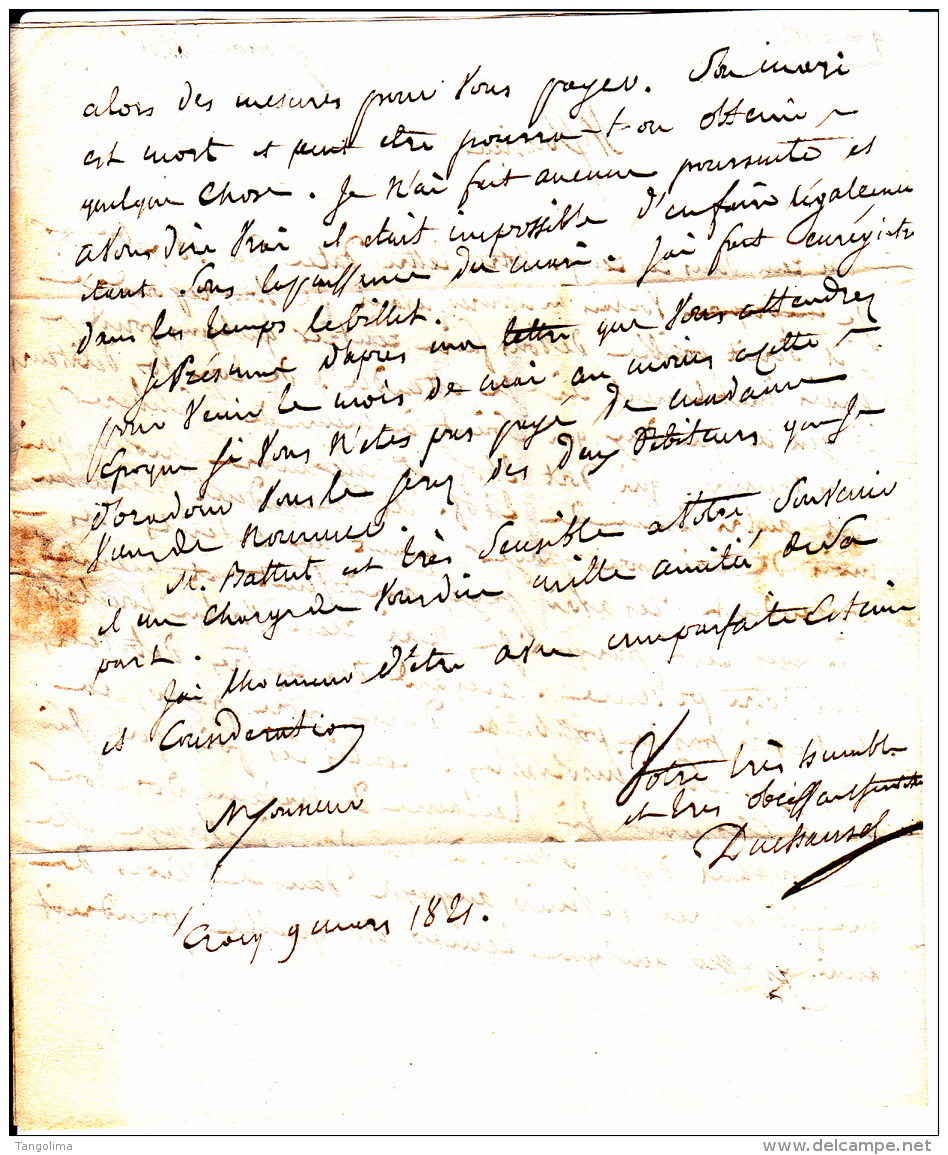 alors des mesures pour Vous payer. Son mari
est mort et peut etre pourra-t-on obtenir
quelque chose. Je N'ai fait aucune poursuite et
a Vous dire Vrai il etait impossible d'en faire légalement
étant Sous la puissance du mari. J'ai fait enrégistr
dans les temps le billet.
Je Présume d'apres ma lettre que Vous attendrez
pour Venir le mois de mai au moins a cette
Epoque Si Vous N'etes pas payé de madame
d'oradour Vous le Serez des deux Débiteurs que Je
Viens de Nommer.
M. Battut est très Sensible a Votre Souvenir
il me charge de Vous dire mille amitié de Sa
part.
J'ai l'honneur d'être avec une parfaite Estime
et Consideration
Monsieur
Votre très humble
et très obéissant Servite
Duchausel
Crocq 9 mars 1821.
Tangolima
www.delcampe.net